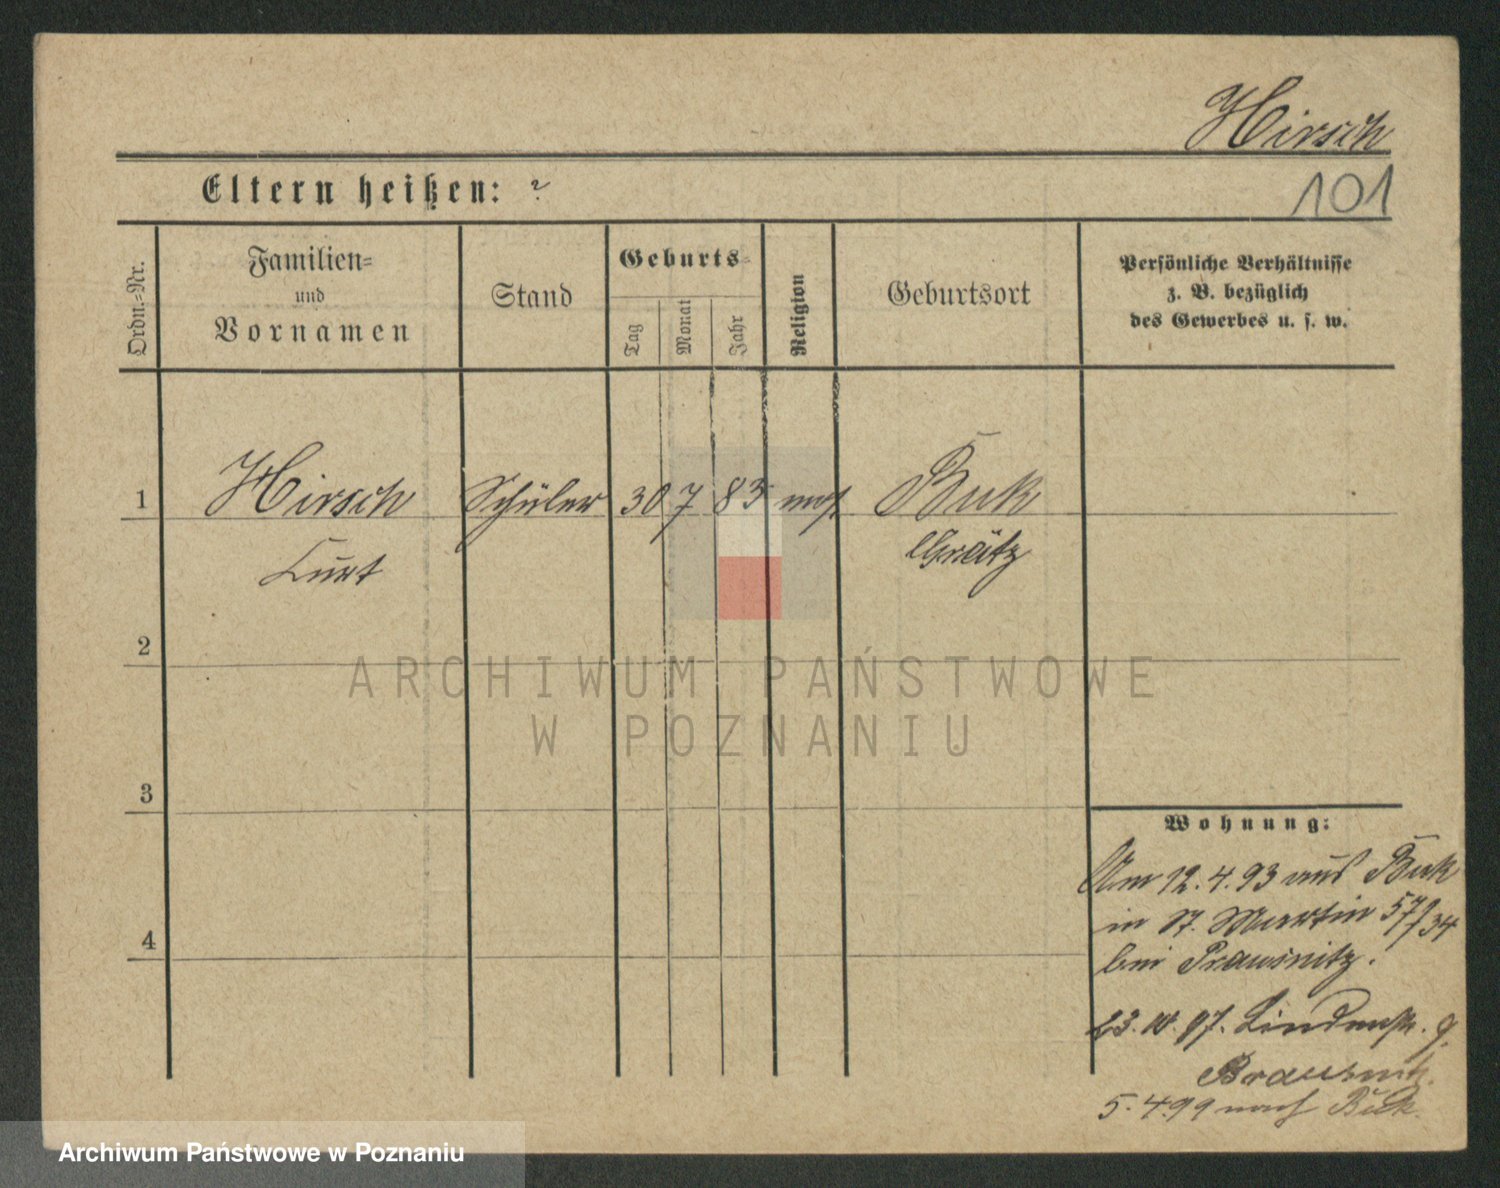 Hirsch
Eltern heißen: ?
101
Ordn.=Nr.
Familien=
und
Vornamen
Stand
Geburts=
Tag
Monat
Jahr
Religion
Geburtsort
Persönliche Verhältnisse
z. B. bezüglich
des Gewerbes u. s. w.
1
Hirsch
Schüler
30
7
83
mos.
Buk
Curt
Grätz
2
ARCHIWUM PAŃSTWOWE
W POZNANIU
3
Wohnung:
Am 12.4.93 aus Buk
in St. Martin 57/34
bei Prausnitz.
4
23. 10. 97. Lindenstr. 9.
Brausnitz.
5.4.99 nach Buk.
Archiwum Państwowe w Poznaniu